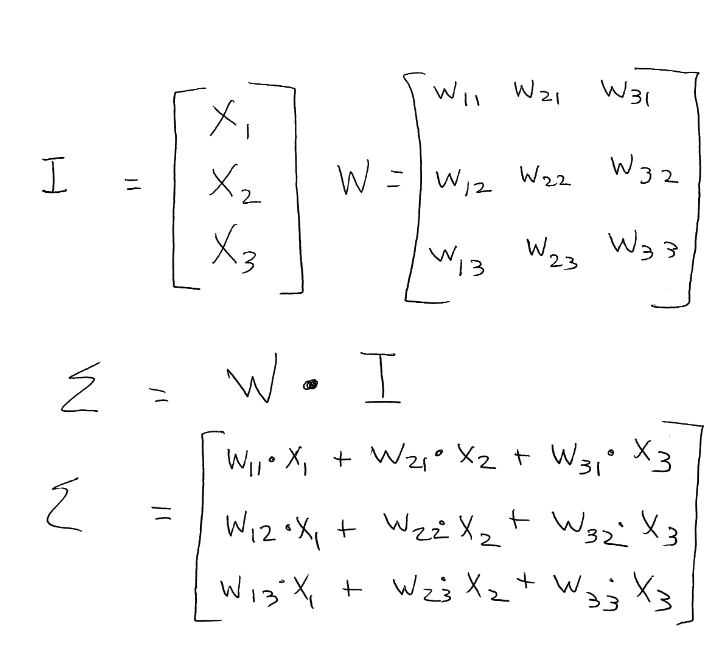 I = [X₁ X₂ X₃] W = [W₁₁ W₂₁ W₃₁
W₁₂ W₂₂ W₃₂
W₁₃ W₂₃ W₃₃]
Σ = W • I
Σ = [W₁₁•X₁ + W₂₁•X₂ + W₃₁•X₃
W₁₂•X₁ + W₂₂•X₂ + W₃₂•X₃
W₁₃•X₁ + W₂₃•X₂ + W₃₃•X₃]